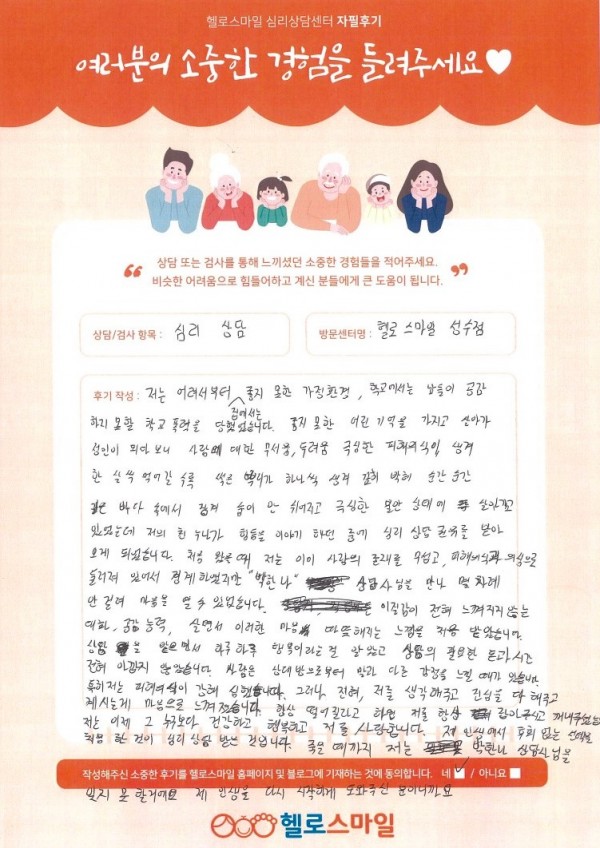 헬로스마일 심리상담센터 자필후기
여러분의 소중한 경험을 들려주세요♥
상담 또는 검사를 통해 느끼셨던 소중한 경험들을 적어주세요.
비슷한 어려움으로 힘들어하고 계신 분들에게 큰 도움이 됩니다.
상담/검사 항목 : 심리 상담
방문센터명 : 헬로 스마일 성수점
후기 작성 : 저는 어려서부터 좋지 못한 가정환경, 학교에서는 남들이 공감
하지 못할 학교 폭력을 집에서는 당했었습니다. 좋지 못한 어린 기억을 가지고 살아가
성인이 되다 보니 사람에 대한 무서움, 두려움 극심한 피해의식이 생겨
한 살씩 먹어갈 수록 썩은 하나씩 생겨 콱 박혀 순간 순간
깊은 바다 속에서 잠겨 숨이 안 쉬어지고 극심한 불안 상태에 살아가고
있었는데 저의 친 누나가 힘듦을 이야기 하던 중에 심리 상담 권유를 받아
오게 되었습니다. 처음 왔을 때 저는 이미 사람의 존재를 무섭고, 피해의식과 의심으로
둘러져 있어서 경계 하였지만 "박한나" 상담사님을 만나 몇 차례
안 걸려 마음을 열 수 있었습니다. 이질감이 전혀 느껴지지 않는
대화, 공감 능력, 살면서 이러한 마음이 따뜻해지는 느낌을 처음 받았습니다.
상담을 받으면서 하루 하루 행복이라는 걸 알았고 상담의 필요한 돈과 시간
전혀 아깝지 않았습니다. 사람은 상대방으로부터 말과 다른 감정을 느낄 때가 있습니다.
특히 저는 피해의식이 강해 심했습니다. 그러나 전혀, 저를 생각해주고 진심을 다 해주고
계시는게 마음으로 느껴졌습니다. 항상 떨어질라고 하면 저를 항상 잡아주시고 꺼내주셨는데
저는 이제 그 누구보다 건강하고 행복하고 저를 사랑합니다. 인생에서 후회 없는 선택을
처음 한 것이 심리 상담 받은 것입니다. 죽을 때까지 저는 박한나 상담사님을
작성해주신 소중한 후기를 헬로스마일 홈페이지 및 블로그에 기재하는 것에 동의합니다. 네 / 아니요
잊지 못 할거예요 제 인생을 다시 시작하게 도와주신 분이니까요
헬로스마일